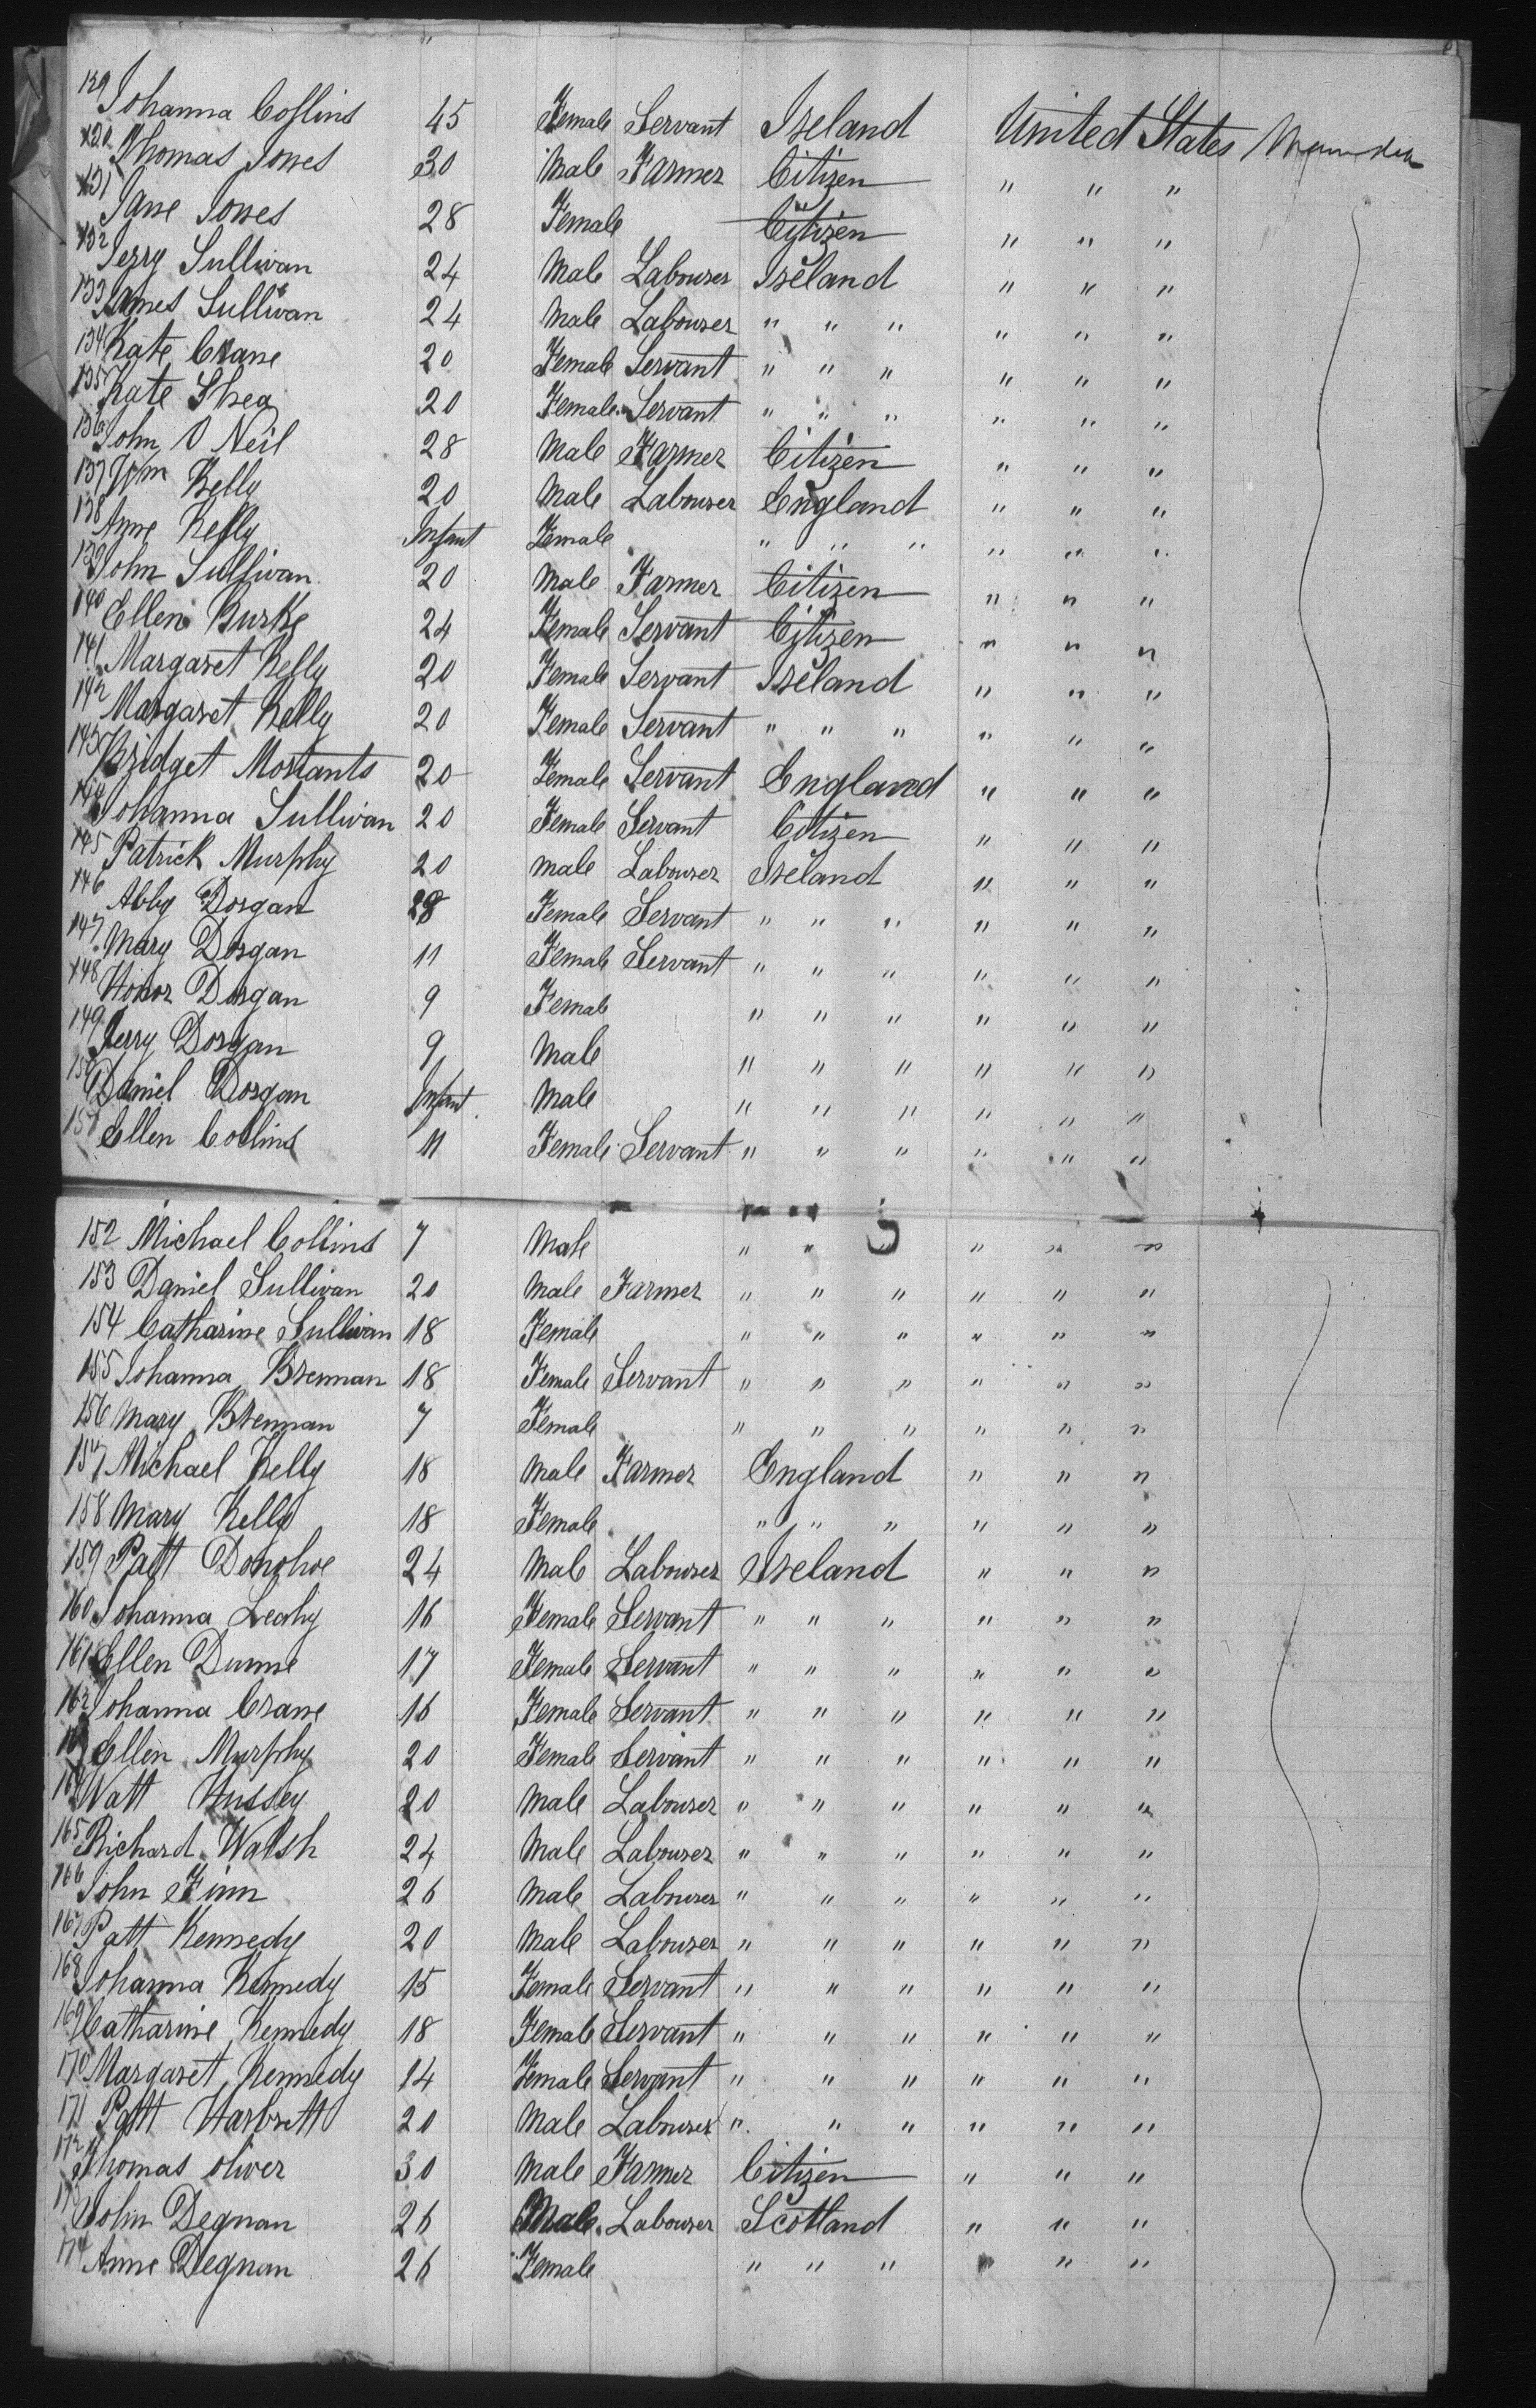 129 Johanna Collins 45 Female Servant Ireland United States
130 Thomas Jones 30 Male Farmer Citizen " " "
131 Jane Jones 28 Female Citizen " " "
132 Jerry Sullivan 24 Male Labourer Ireland " " "
133 James Sullivan 24 Male Labourer " " " " " "
134 Kate Crane 20 Female Servant " " " " " "
135 Kate Shea 20 Female Servant " " " " " "
136 John O Neil 28 Male Farmer Citizen " " "
137 Wm Kelly 20 Male Labourer England " " "
138 Anne Kelly Infant Female " " " " " "
139 John Sullivan 20 Male Farmer Citizen " " "
140 Ellen Burke 24 Female Servant Citizen " " "
141 Margaret Kelly 20 Female Servant Ireland " " "
142 Margaret Kelly 20 Female Servant " " " " " "
143 Bridget 20 Female Servant England " " "
144 Johanna Sullivan 20 Female Servant Citizen " " "
145 Patrick Murphy 20 Male Labourer Ireland " " "
146 Abby Dorgan 28 Female Servant " " " " " "
147 Mary Dorgan 11 Female Servant " " " " " "
148 Honor Dorgan 9 Female " " " " " "
149 Jerry Dorgan 9 Male " " " " " "
150 Daniel Dorgan Infant Male " " " " " "
151 Ellen Collins 11 Female Servant " " " " " "
152 Michael Collins 7 Male " " " " " "
153 Daniel Sullivan 20 Male Farmer " " " " " "
154 Catharine Sullivan 18 Female " " " " " "
155 Johanna Brennan 18 Female Servant " " " " " "
156 Mary Brennan 7 Female " " " " " "
157 Michael Kelly 18 Male Farmer England " " "
158 Mary Kelly 18 Female " " " " " "
159 Patt Donohoe 24 Male Labourer Ireland " " "
160 Johanna Leahy 16 Female Servant " " " " " "
161 Ellen Dunne 17 Female Servant " " " " " "
162 Johanna Crane 16 Female Servant " " " " " "
163 Ellen Murphy 20 Female Servant " " " " " "
164 Watt Hussey 20 Male Labourer " " " " " "
165 Richard Walsh 24 Male Labourer " " " " " "
166 John Finn 26 Male Labourer " " " " " "
167 Patt Kennedy 20 Male Labourer " " " " " "
168 Johanna Kennedy 15 Female Servant " " " " " "
169 Catharine Kennedy 18 Female Servant " " " " " "
170 Margaret Kennedy 14 Female Servant " " " " " "
171 Patt Harbrett 20 Male Labourer " " " " " "
172 Thomas Oliver 30 Male Farmer Citizen " " "
173 John Degnan 26 Male Labourer Scotland " " "
174 Anne Degnan 26 Female " " " " " "